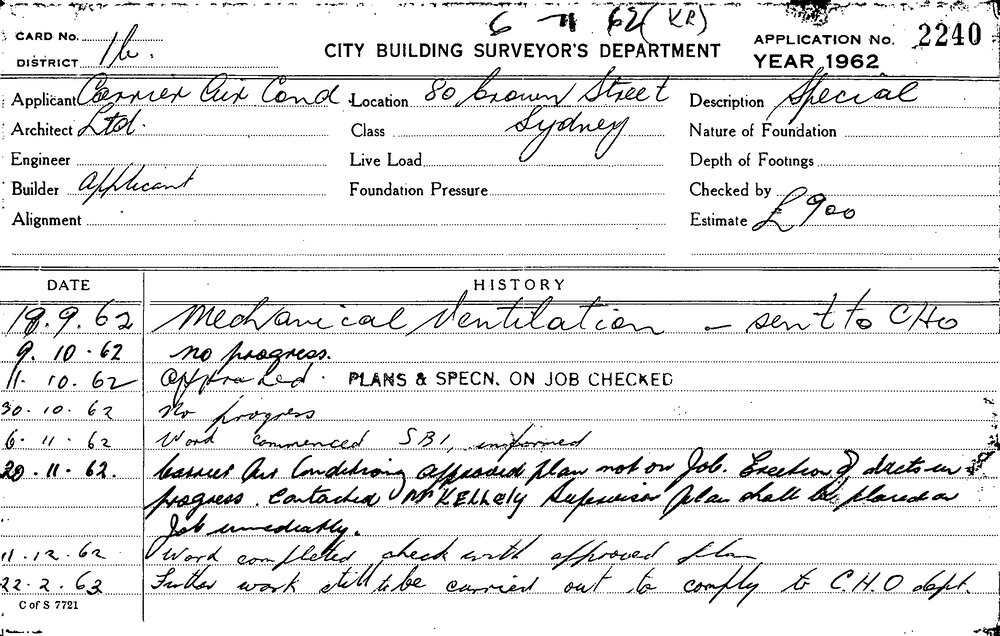 6 11 62 (KR)
CARD No.
DISTRICT 1b.
CITY BUILDING SURVEYOR'S DEPARTMENT
APPLICATION No. 2240
YEAR 1962
Applicant Carrier Air Cond Location 80 Crown Street Description Special
Architect Ltd. Class Sydney Nature of Foundation
Engineer Live Load Depth of Footings
Builder applicant Foundation Pressure Checked by
Alignment Estimate £900
DATE HISTORY
18.9.62 Mechanical Ventilation - sent to CHO
9.10.62 No progress.
11.10.62 Approved. PLANS & SPECN. ON JOB CHECKED
30.10.62 No progress
6.11.62 Work commenced SBI, informed
20.11.62. Carrier Air Conditioning approved plan not on Job. Erection of ducts in
progress. Contacted Mr KELLELY Supervisor plan shall be placed on
Job immediately.
11.12.62 Work completed check with approved plan
22.2.63 Further work still to be carried out to comply to C.H.O dept.
C of S 7721